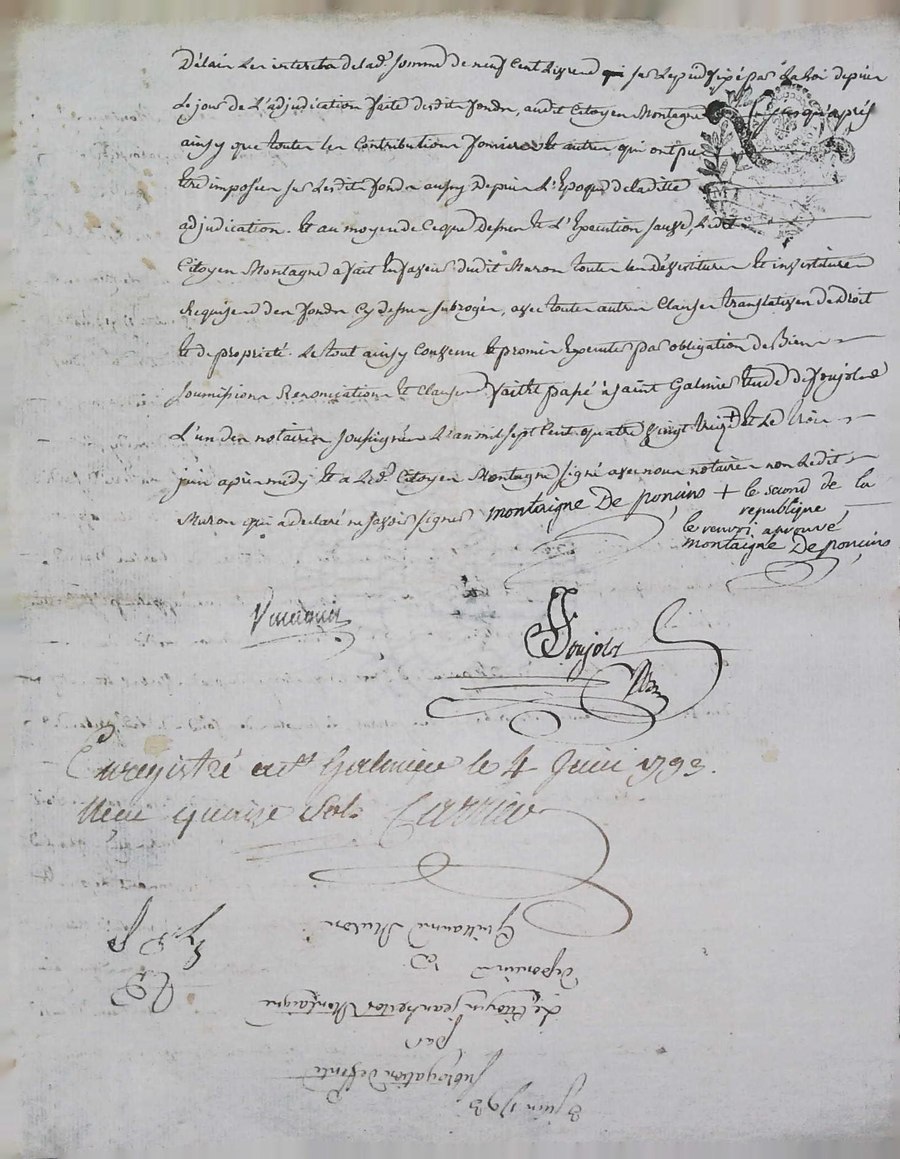 Délais les interets de lad. somme de neuf Cent Livres sur le pied fixé par la Loi depuis
Le jour de L'adjudication faite desdits fonds, audit Citoyen Montagne jusqu'après
ainsy que toutes les Contributions foncieres et autres qui ont pu
etre imposées sur lesdits fonds aussy Depuis L'Epoque de laditte
adjudication. Et au moyen de Ceque Dessus et L'Execution sauve, Ledit
Citoyen Montagne a fait en faveur dudit Muron toutes les dévestitures et investitures
Requises des fonds Cy dessus subrogés, avec toutes autres Clauses translatives de Droit
et de propriété. Le tout ainsy Convenu et promis Executer par obligation de Biens
soumissions Renonciations et Clauses. fait et passé à saint Galmier Etude de foujols
L'un des notaires soussignés L'an mil sept Cent quatre vingt treize + et Le trois
juin apres midy et a Led. Citoyen Montagne signé avec nous notaires non Ledit
Muron qui a declaré ne savoir signer montaigne De poncins + le second de la
republique
le renvoi aprouvé
montaigne De poncins
foujols
Enregistré a St Galmier le 4 Juin 1793.
Reçu quinze sols Carrier
3 juin 1793
subrogation de fonds
par
Le Citoyen jean hector Montaigne
deponcins
a
Guillaume Muron